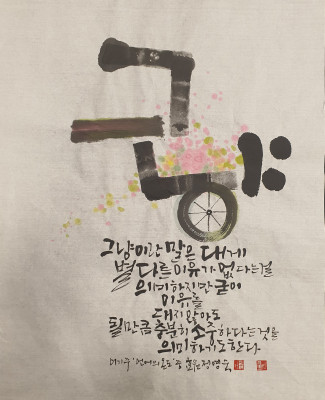 그냥
그냥이란 말은 대게
별 다른 이유가 없다는걸
의미하지만 굳이
이유를
대지 않아도
될만큼 충분히 소중하다는것을
의미하기도 한다
이기주 '언어의 온도' 중